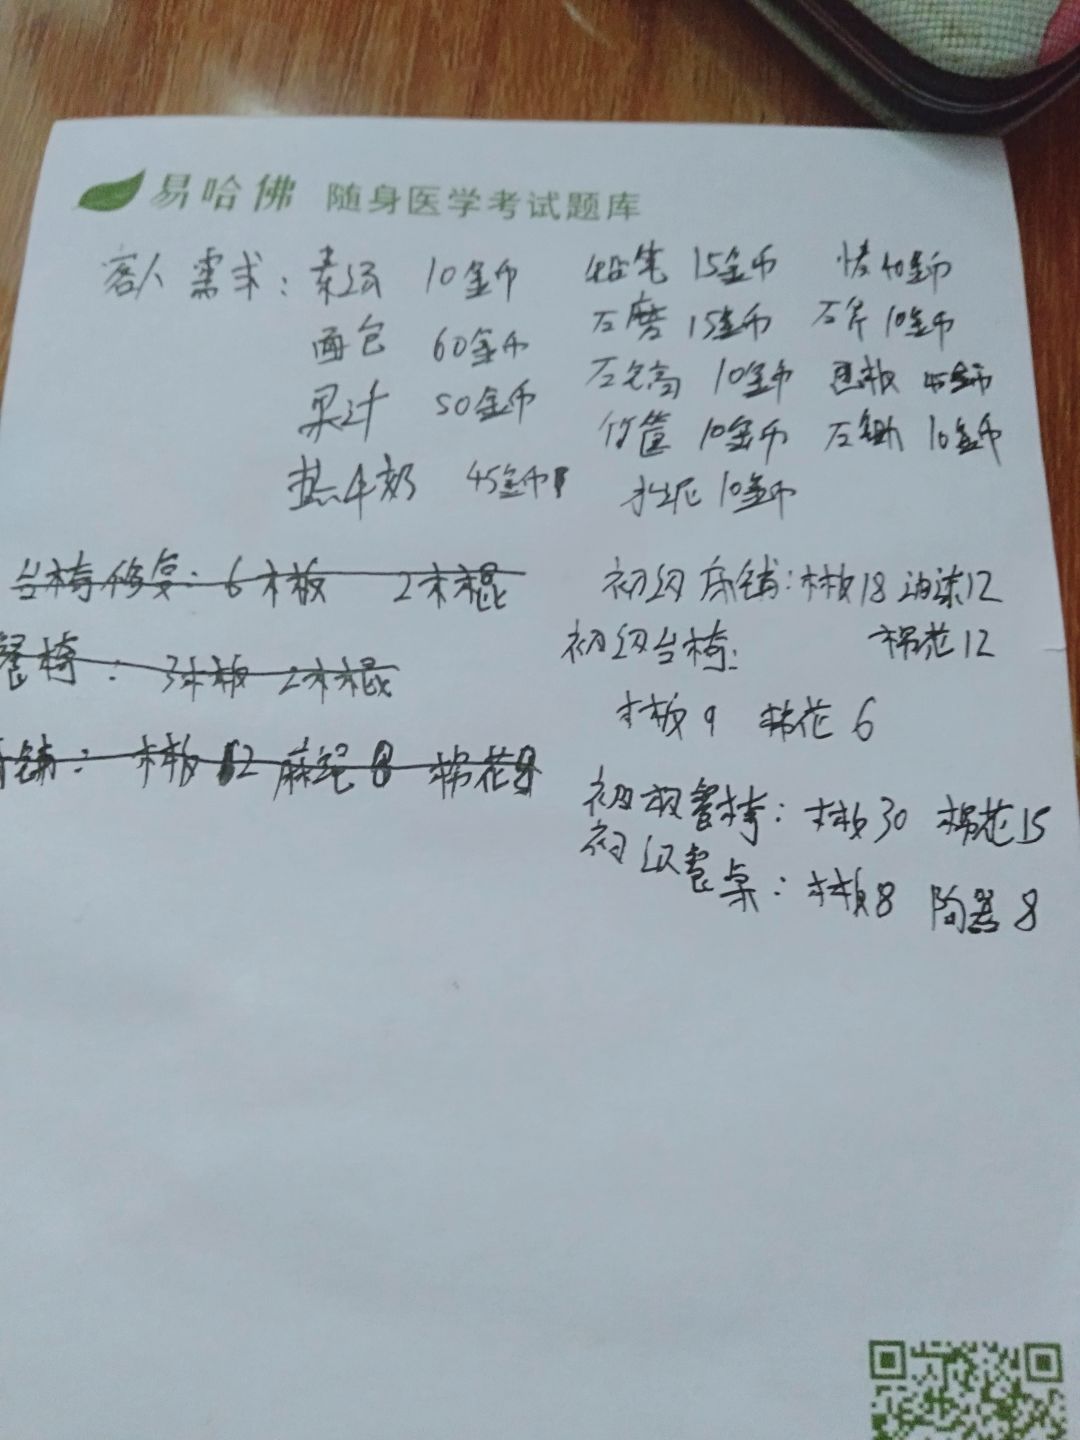 易哈佛 随身医学考试题库
客人需求: 素汤 10金币 铅笔 15金币 40金币
面包 60金币 石磨 15金币 石斧 10金币
果汁 50金币 石镐 10金币 45金币
热牛奶 45金币 竹筐 10金币 石锄 10金币
水泥 10金币
台椅修复: 6木板 2木棍
餐椅: 3木板 2木棍
铺: 木板12 麻绳8 棉花8
初级店铺: 木板18 油漆12
棉花12
初级台椅:
木板9 棉花6
初级餐椅: 木板30 棉花15
初级餐桌: 木板8 陶器8